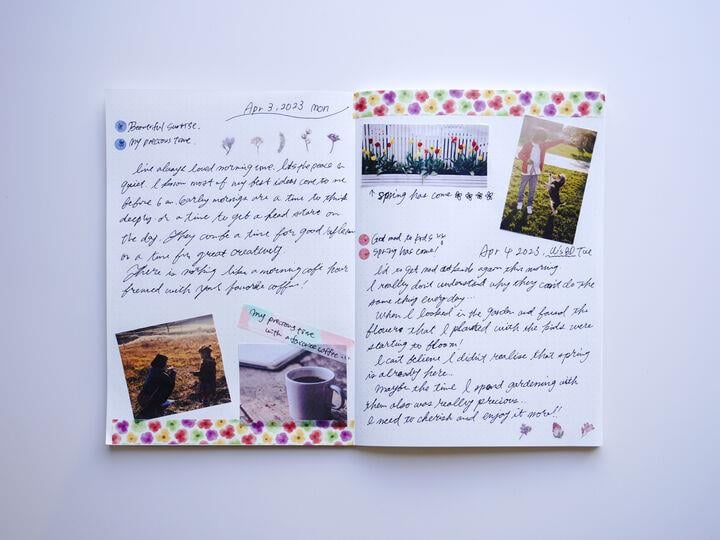 Apr 3, 2023 mon
Beautiful sunrise.
My precious time.
I've always loved morning time. It's the peace &
quiet. I know most of my best ideas come to me
before 6 am. Early mornings are a time to think
deeply or a time to get a head start on
the day. They can be a time for good reflection
or a time for great creativity
There is nothing like a morning coffee have
brewed with your favorite coffee!
My precious time
with a favorite coffee...
↑ Spring has come
Got mad to kids
Spring has come!
Apr 4 2023, Wed Tue
I'd to get mad at kids again this morning.
I really don't understand why they can't do the
same thing everyday...
When I looked in the garden and found the
flowers that I planted with the kids were
starting to bloom!
I can't believe I didn't realise that spring
is already here..
Maybe the time I spend gardening with
them also was really precious..
I need to cherish and enjoy it more!!